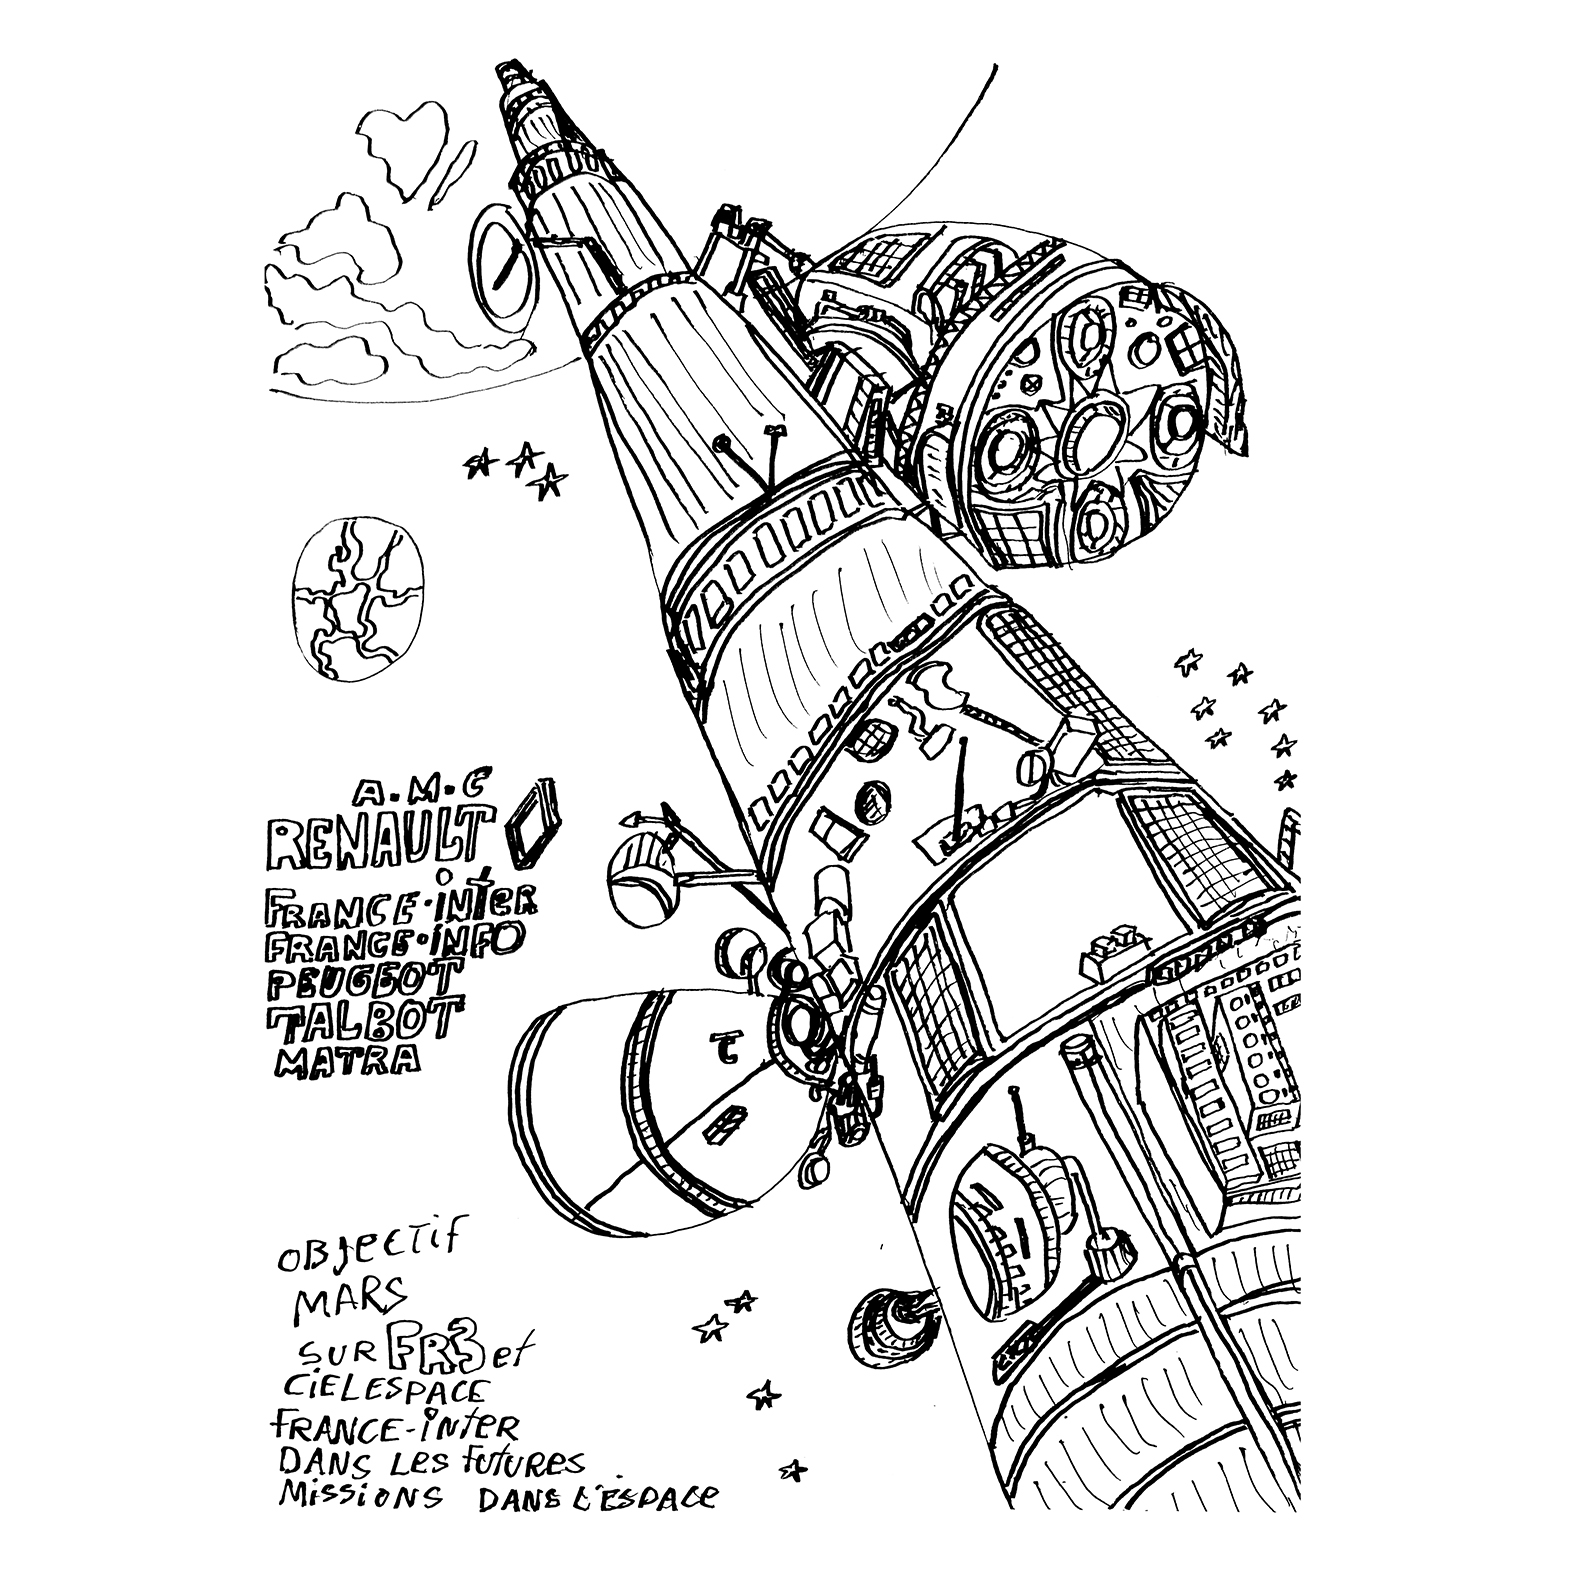 A.M.C
RENAULT
FRANCE.iNTER
FRANCE.iNFO
PEUGEOT
TALBOT
MATRA
OBJECTIF
MARS
SUR FR3 et
CiELESPACE
FRANCE-iNTER
DANS LES FUTURES
MiSSiONS DANS L'ESPACE